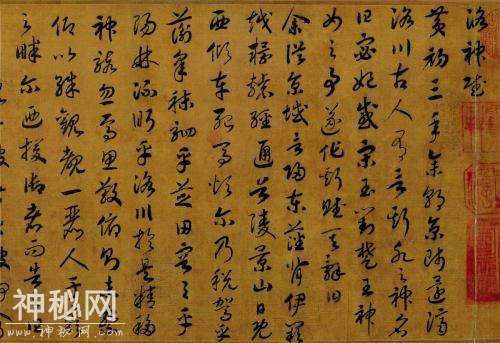 洛神賦
黄初三年余朝京師還濟
洛川古人有言斯水之神名
曰宓妃感宋玉對楚王神
女之事遂作斯賦其辭曰
余從京域言歸東藩背伊闕
越轘轅經通谷陵景山日既
西傾車殆馬煩爾乃税駕乎
蘅皋秣駟乎芝田容與乎
陽林流眄乎洛川於是精移
神駭忽焉思散俯則未察
仰以殊觀覩一麗人于
之畔爾迺援御者而告
神秘网
www.神秘网.com